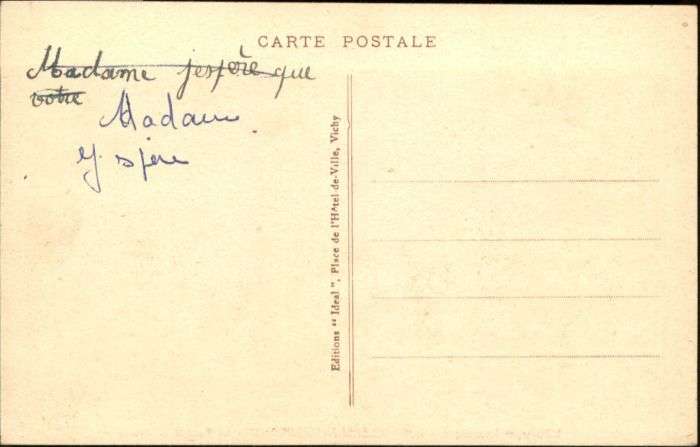 CARTE POSTALE
Madame jespère que
votre
Madame
J'espère
Editions " Ideal ", Place de l'Hôtel-de-Ville, Vichy